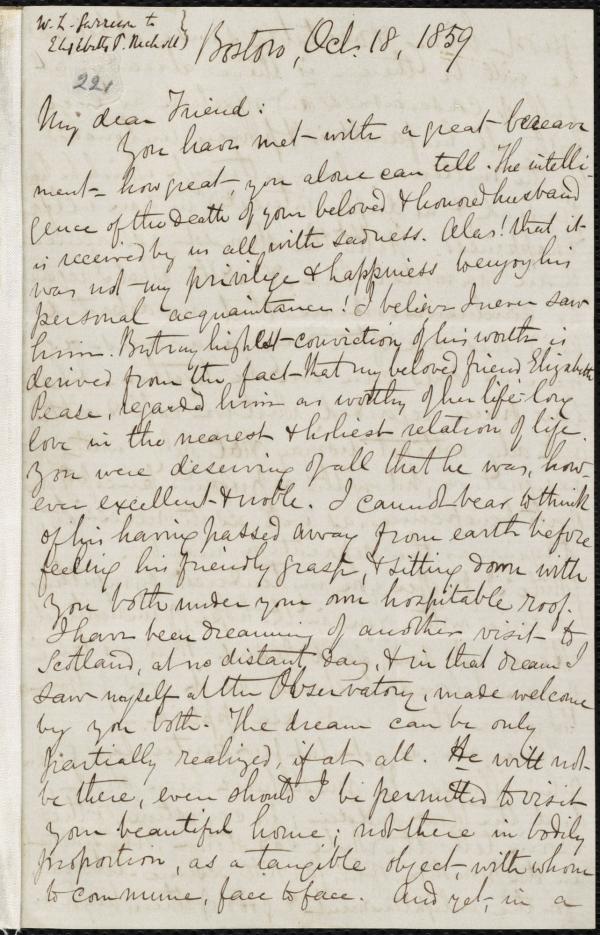 W. L. Garrison to
Elizabeth P. Nichol }
Boston, Oct. 18, 1859
221
My dear Friend:
You have met with a great bereave
ment - how great, you alone can tell. The intelli-
gence of the death of your beloved & honored husband
is received by us all with sadness. Alas! that it
was not my privilege & happiness to enjoy his
personal acquaintance! I believe I never saw
him. But my highest conviction of his worth is
derived from the fact that my beloved friend Elizabeth
Pease, regarded him as worthy of her life-long
love in the nearest & holiest relation of life.
You were deserving of all that he was, how-
ever excellent & noble. I cannot bear to think
of his having passed away from earth before
feeling his friendly grasp, & sitting down with
you both under your own hospitable roof.
I have been dreaming of another visit to
Scotland, at no distant day, & in that dream I
saw myself at the Observatory, made welcome
by you both. The dream can be only
partially realized, if at all. He will not
be there, even should I be permitted to visit
your beautiful home; not there in bodily
proportion, as a tangible object, with whom
to commune, face to face. And yet, in a